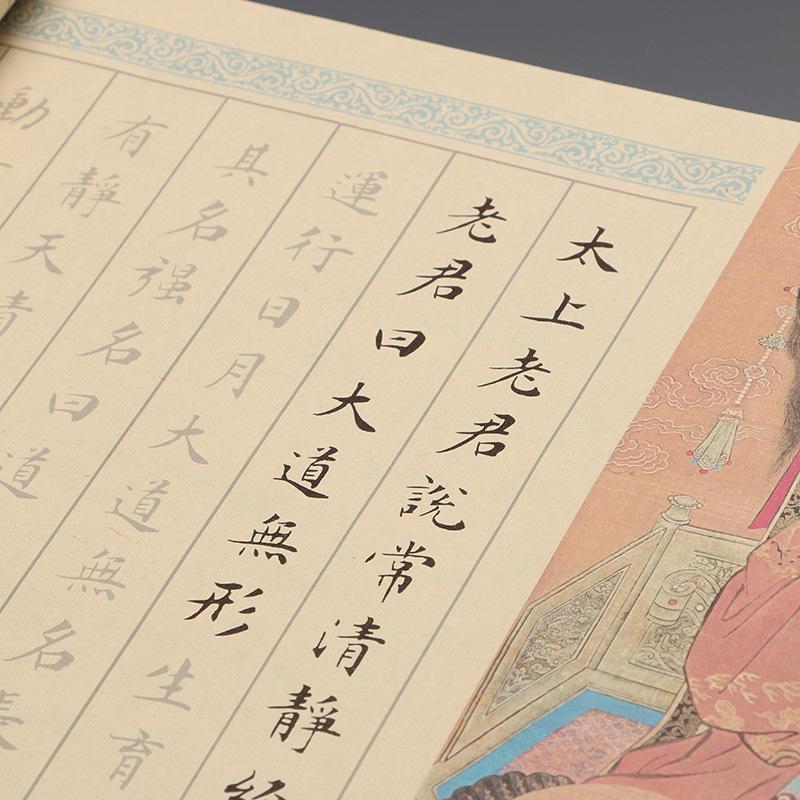 太上老君說常清靜經
老君曰大道無形生育
運行日月大道無名長
其名强名曰道
有靜天清
動